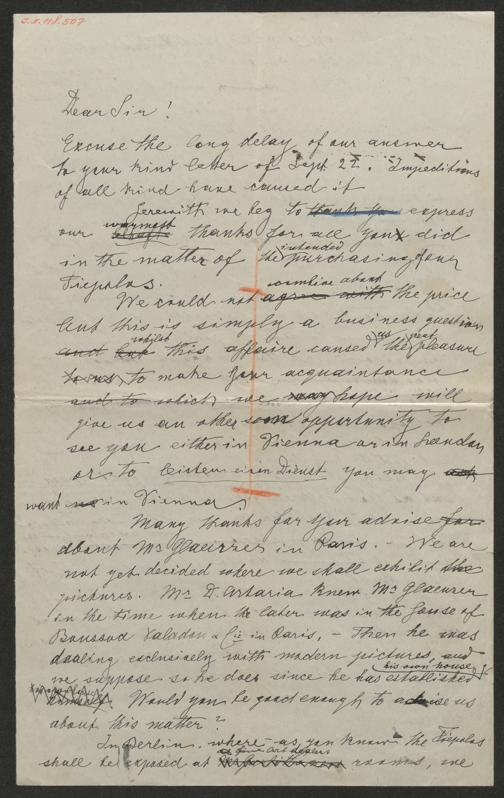 I.N. 118.507
Dear Sir!
Excuse the long delay of our answer
to your kind letter of Sept. 22. Impeditions
of all kind have caused it
Herewith we beg to thank you express
warmest
our thanks for all you did
intended
in the matter of the purchasing of our
Tiepolos.
combine about
We could not agree with the price
but this is simply a business question
whilst us great
and but this affaire caused the pleasure
to us, to make your acquaintance
and to which we may hope will
give us an other soon opportunity to
see you either in Vienna or in London
or to leisten einen Dienst you may ask
want us in Vienna
Many thanks for your advise for
about Mr Glaenzer in Paris. - We are
not yet decided where we shall exhibit the
pictures. Mr D. Artaria knew Mr Glaenzer
in the time when the later was in the house of
Boussod Valadon & Cie in Paris, - Then he was
dealing exclusively with modern pictures, and
his own house
we suppose so he does since he has established
himself. Would you be good enough to advise us
about this matter?
In Berlin, where - as you know - the Tiepolos
art dealers
shall be exposed at rooms, we